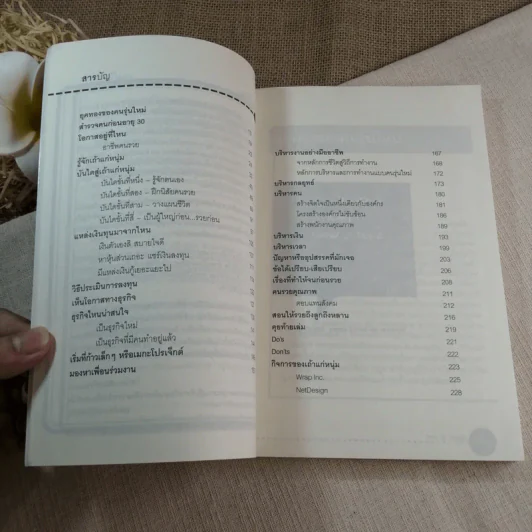 สารบัญ
ยุคทองของคนรุ่นใหม่
สำรวจคนก่อนอายุ 30
โอกาสอยู่ที่ไหน
อาชีพคนรวย
รู้จักเถ้าแก่หนุ่ม
บันไดสู่เถ้าแก่หนุ่ม
บันไดขั้นที่หนึ่ง – รู้จักตนเอง
บันไดขั้นที่สอง – ฝึกนิสัยคนรวย
บันไดขั้นที่สาม – วางแผนชีวิต
บันไดขั้นที่สี่ – เป็นผู้ใหญ่ก่อน...รวยก่อน
แหล่งเงินทุนมาจากไหน
เงินตัวเองสิ สบายใจดี
หาหุ้นส่วนเถอะ แชร์เงินลงทุน
มีแหล่งเงินกู้เยอะแยะไป
วิธีประเมินการลงทุน
เห็นโอกาสทางธุรกิจ
ธุรกิจไหนน่าสนใจ
เป็นธุรกิจใหม่
เป็นธุรกิจที่มีคนทำอยู่แล้ว
เริ่มที่ก้าวเล็กๆ หรือเมกะโปรเจ็กต์
มองหาเพื่อนร่วมงาน
บริหารงานอย่างมืออาชีพ 167
จากหลักการชีวิตสู่วิธีการทำงาน 169
หลักการบริหารและการทำงานแบบคนรุ่นใหม่ 172
บริหารกลยุทธ์ 173
บริหารคน 180
สร้างจิตใจเป็นหนึ่งเดียวกับองค์กร 181
โครงสร้างองค์กรไม่ซับซ้อน 186
สร้างพนักงานคุณภาพ 189
บริหารเงิน 193
บริหารเวลา 199
ปัญหาหรืออุปสรรคที่มักเจอ 201
ข้อได้เปรียบ-เสียเปรียบ 203
เรื่องที่ทำให้จนก่อนรวย 206
คนรวยคุณภาพ 208
ตอบแทนสังคม 211
สอนให้รวยถึงลูกถึงหลาน 216
คุยท้ายเล่ม 219
Do's 221
Don'ts 222
กิจการของเถ้าแก่หนุ่ม 223
Wrap Inc. 225
NetDesign 228